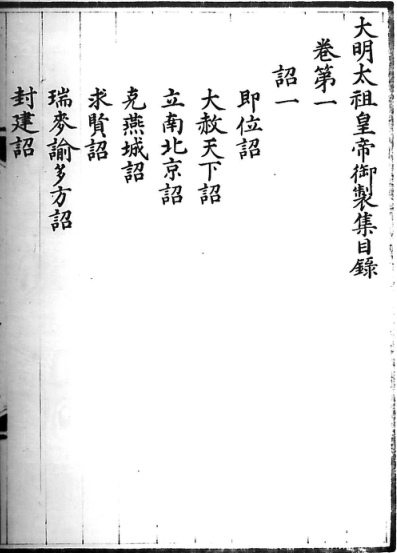 大明太祖皇帝御製集目錄
卷第一
詔一
即位詔
大赦天下詔
立南北京詔
克燕城詔
求賢詔
瑞麥諭多方詔
封建詔